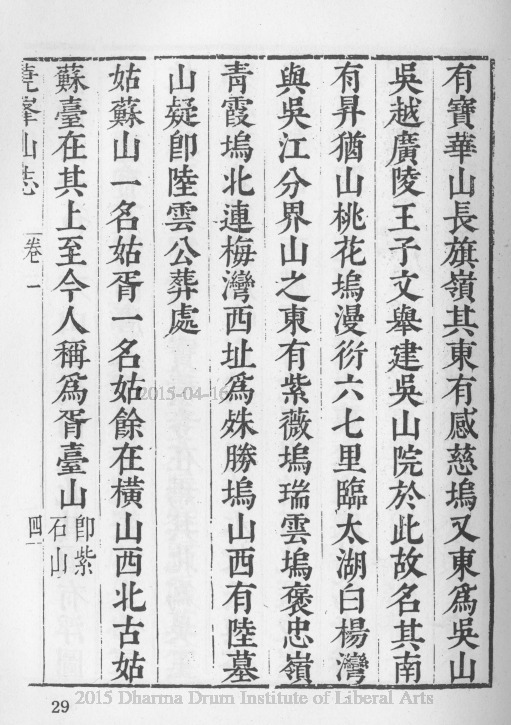 有寶華山長旗嶺其東有感慈塢又東爲吳山
吳越廣陵王子文舉建吳山院於此故名其南
有昇猶山桃花塢漫衍六七里臨太湖白楊灣
與吳江分界山之東有紫薇塢瑞雲塢褒忠嶺
青霞塢北連梅灣西址爲姝勝塢山西有陸墓
山疑卽陸雲公葬處
姑蘇山一名姑胥一名姑餘在橫山西北古姑
蘇臺在其上至今人稱爲胥臺山卽紫石山
堯峯山志 卷一 四
2015-04-16
29
2015 Dharma Drum Institute of Liberal Arts